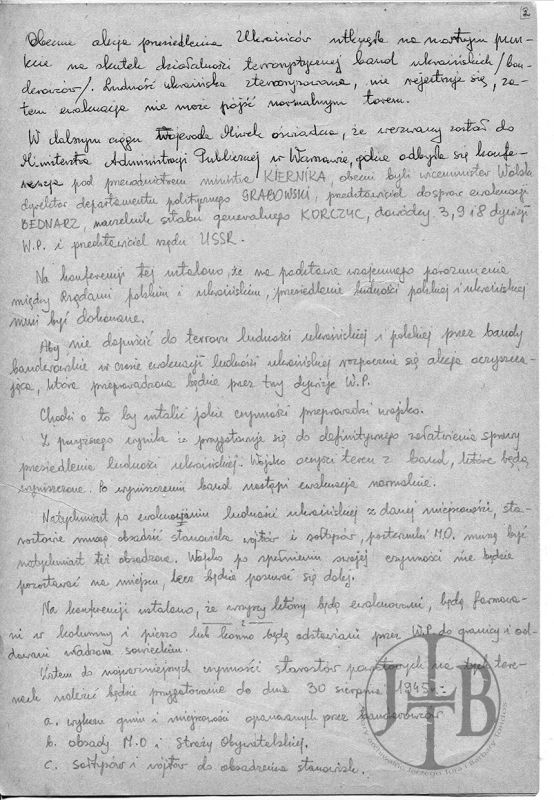 2
Obecnie akcja przesiedlenia Ukraińców utknęła na martwym pun-
kcie na skutek działalności terrorystycznej band ukraińskich /ban-
derowców/. Ludność ukraińska sterroryzowana, nie rejestruje się, za-
tem ewakuacja nie może pójść normalnym torem.
W dalszym ciągu Wojewoda Mirek oświadcza, że wezwany został do
Ministerstwa Administracji Publicznej w Warszawie, gdzie odbyła się konfe-
rencja pod przewodnictwem ministra KIERNIKA, obecni byli wiceminister Wolski
dyrektor departamentu politycznego GRABOWSKI, przedstawiciel do spraw ewakuacji
BEDNARZ, naczelnik sztabu generalnego KORCZYC, dowódcy 3, 9 i 8 dywizji
W.P. i przedstawiciel rządu USSR.
Na konferencji tej ustalono, że na podstawie wzajemnego porozumienia
między Rządami polskim i ukraińskim, przesiedlenie ludności polskiej i ukraińskiej
musi być dokonane.
Aby nie dopuścić do terroru ludności ukraińskiej i polskiej przez bandy
banderowskie w czasie ewakuacji ludności ukraińskiej rozpocznie się akcja oczyszcza-
jąca, która przeprowadzona będzie przez trzy dywizje W.P.
Chodzi o to by ustalić jakie czynności przeprowadzi wojsko.
Z powyższego wynika że przygotowuje się do definitywnego załatwienia sprawy
przesiedlenia ludności ukraińskiej. Wojsko oczyści teren z band, które będą
wyniszczone. Po wyniszczeniu band nastąpi ewakuacja normalna.
Natychmiast po ewakuowaniu ludności ukraińskiej z danej miejscowości, sta-
rostowie muszą obsadzić stanowiska wójtów i sołtysów, posterunki M.O. muszą być
natychmiast też obsadzone. Wojsko po spełnieniu swojej czynności nie będzie
pozostawać na miejscu, lecz będzie posuwać się dalej.
Na konferencji ustalono, że wszyscy którzy będą ewakuowani, będą formowa-
ni w kolumny i pieszo lub konno będą odstawiani przez W.P. do granicy i od-
dawani władzom sowieckim.
Zatem do najważniejszych czynności starostów powiatowych na tych tere-
nach należeć będzie przygotowanie do dnia 30 sierpnia 1945 r.:
a. wykazu gmin i miejscowości opanowanych przez banderowców
b. obsady M.O i Straży Obywatelskiej.
c. sołtysów i wójtów do obsadzenia stanowisk.
JTB